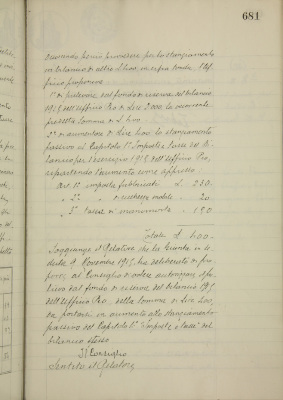 681
Occorrendo perciò provvedere per lo stanziamento
in bilancio di altre L. 400. in cifra tonda, l'Uf-
ficio propone:
1° di prelevare dal fondo di riserva del bilancio
1915 dell'Ufficio Pio di Lire 2000 la occorrente
predetta somma di L. 400.
2° di aumentare di Lire 400 lo stanziamento
passivo al Capitolo 1° Imposte e Tasse del Bi-
lancio per l'esercizio 1915 dell'Ufficio Pio,
ripartendo l'aumento come appresso:
Art. 1° imposta fabbricati L. 230.
" 2° " di ricchezza mobile " 20.
" 3° tassa di manomorta " 150.
Totale L. 400.
Soggiunge il Relatore che la Giunta in se-
duta 9 Novembre 1915, ha deliberato di pro-
porre al Consiglio di volere autorizzare
dal fondo di riserva del bilancio 1915
dell'Ufficio Pio della somma di Lire 400,
da portarsi in aumento allo stanziamento
passivo del Capitolo 1° "Imposte e tasse" del
bilancio stesso
Il Consiglio
Sentito il Relatore